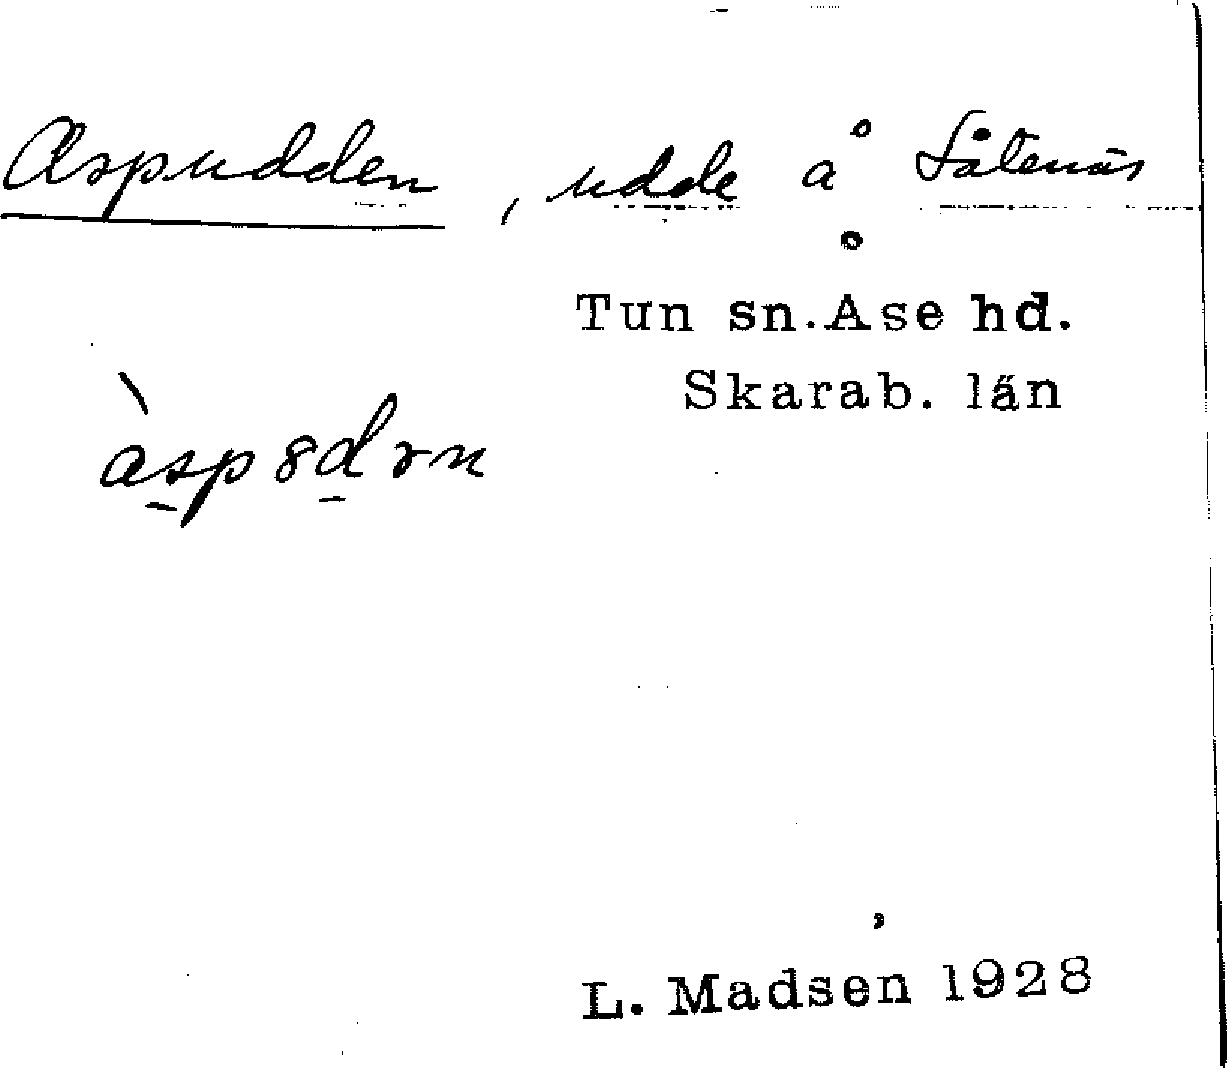 Aspudden, udde å Såtenäs
Tun sn. Åse hd.
Skarab. län
àsp8dən
L. Madsen 1928